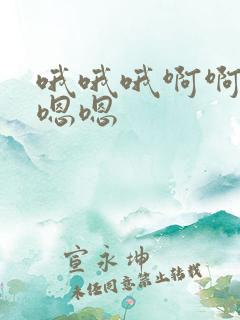 哦哦哦啊啊
嗯嗯
宣永坤
未经同意禁止转载